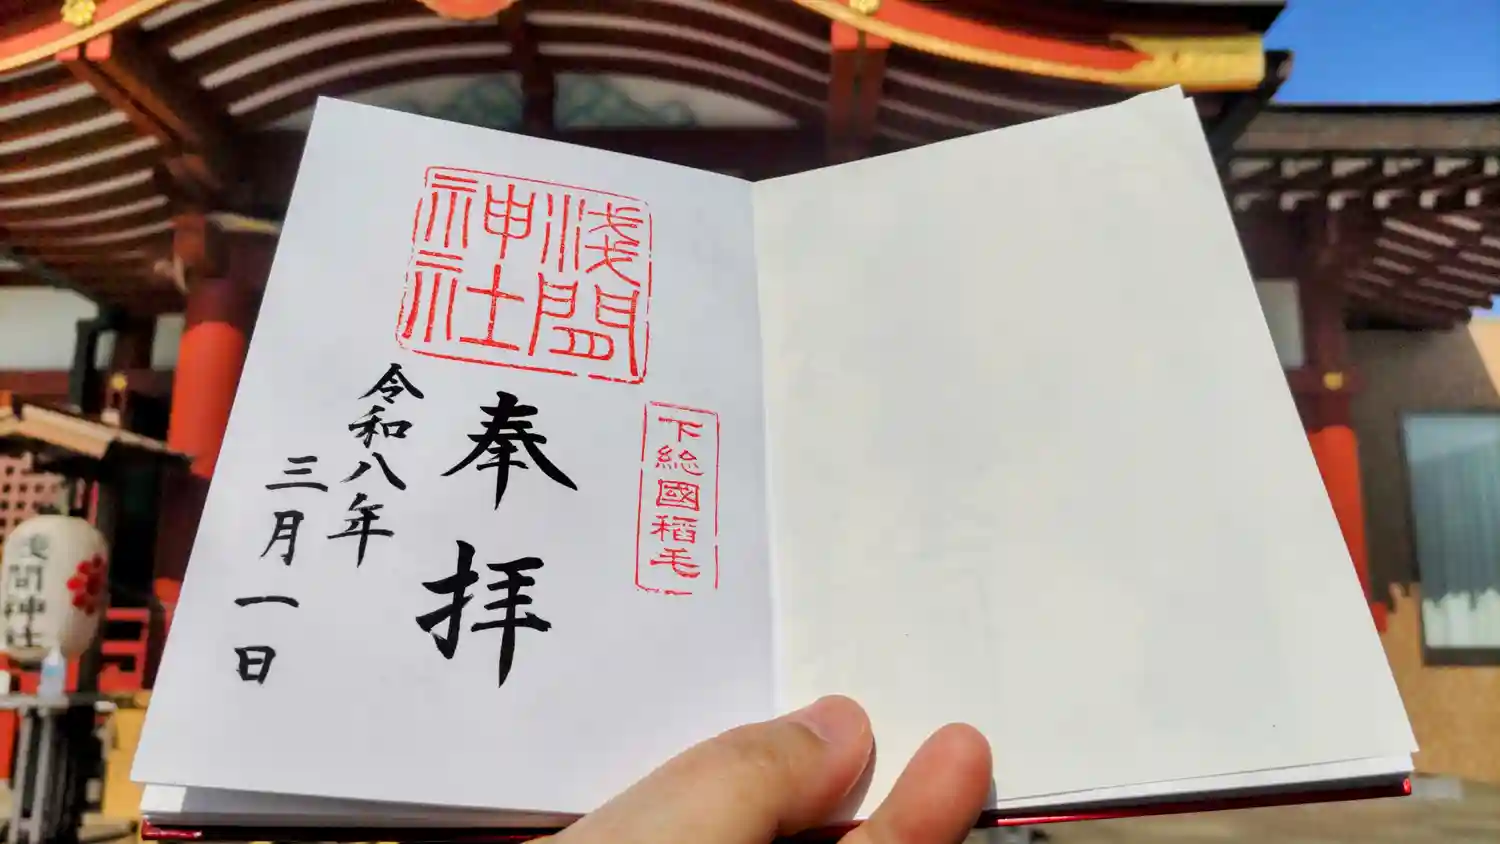 浅間
神社
下総國稲毛
奉拝
令和八年
三月一日
浅間神社